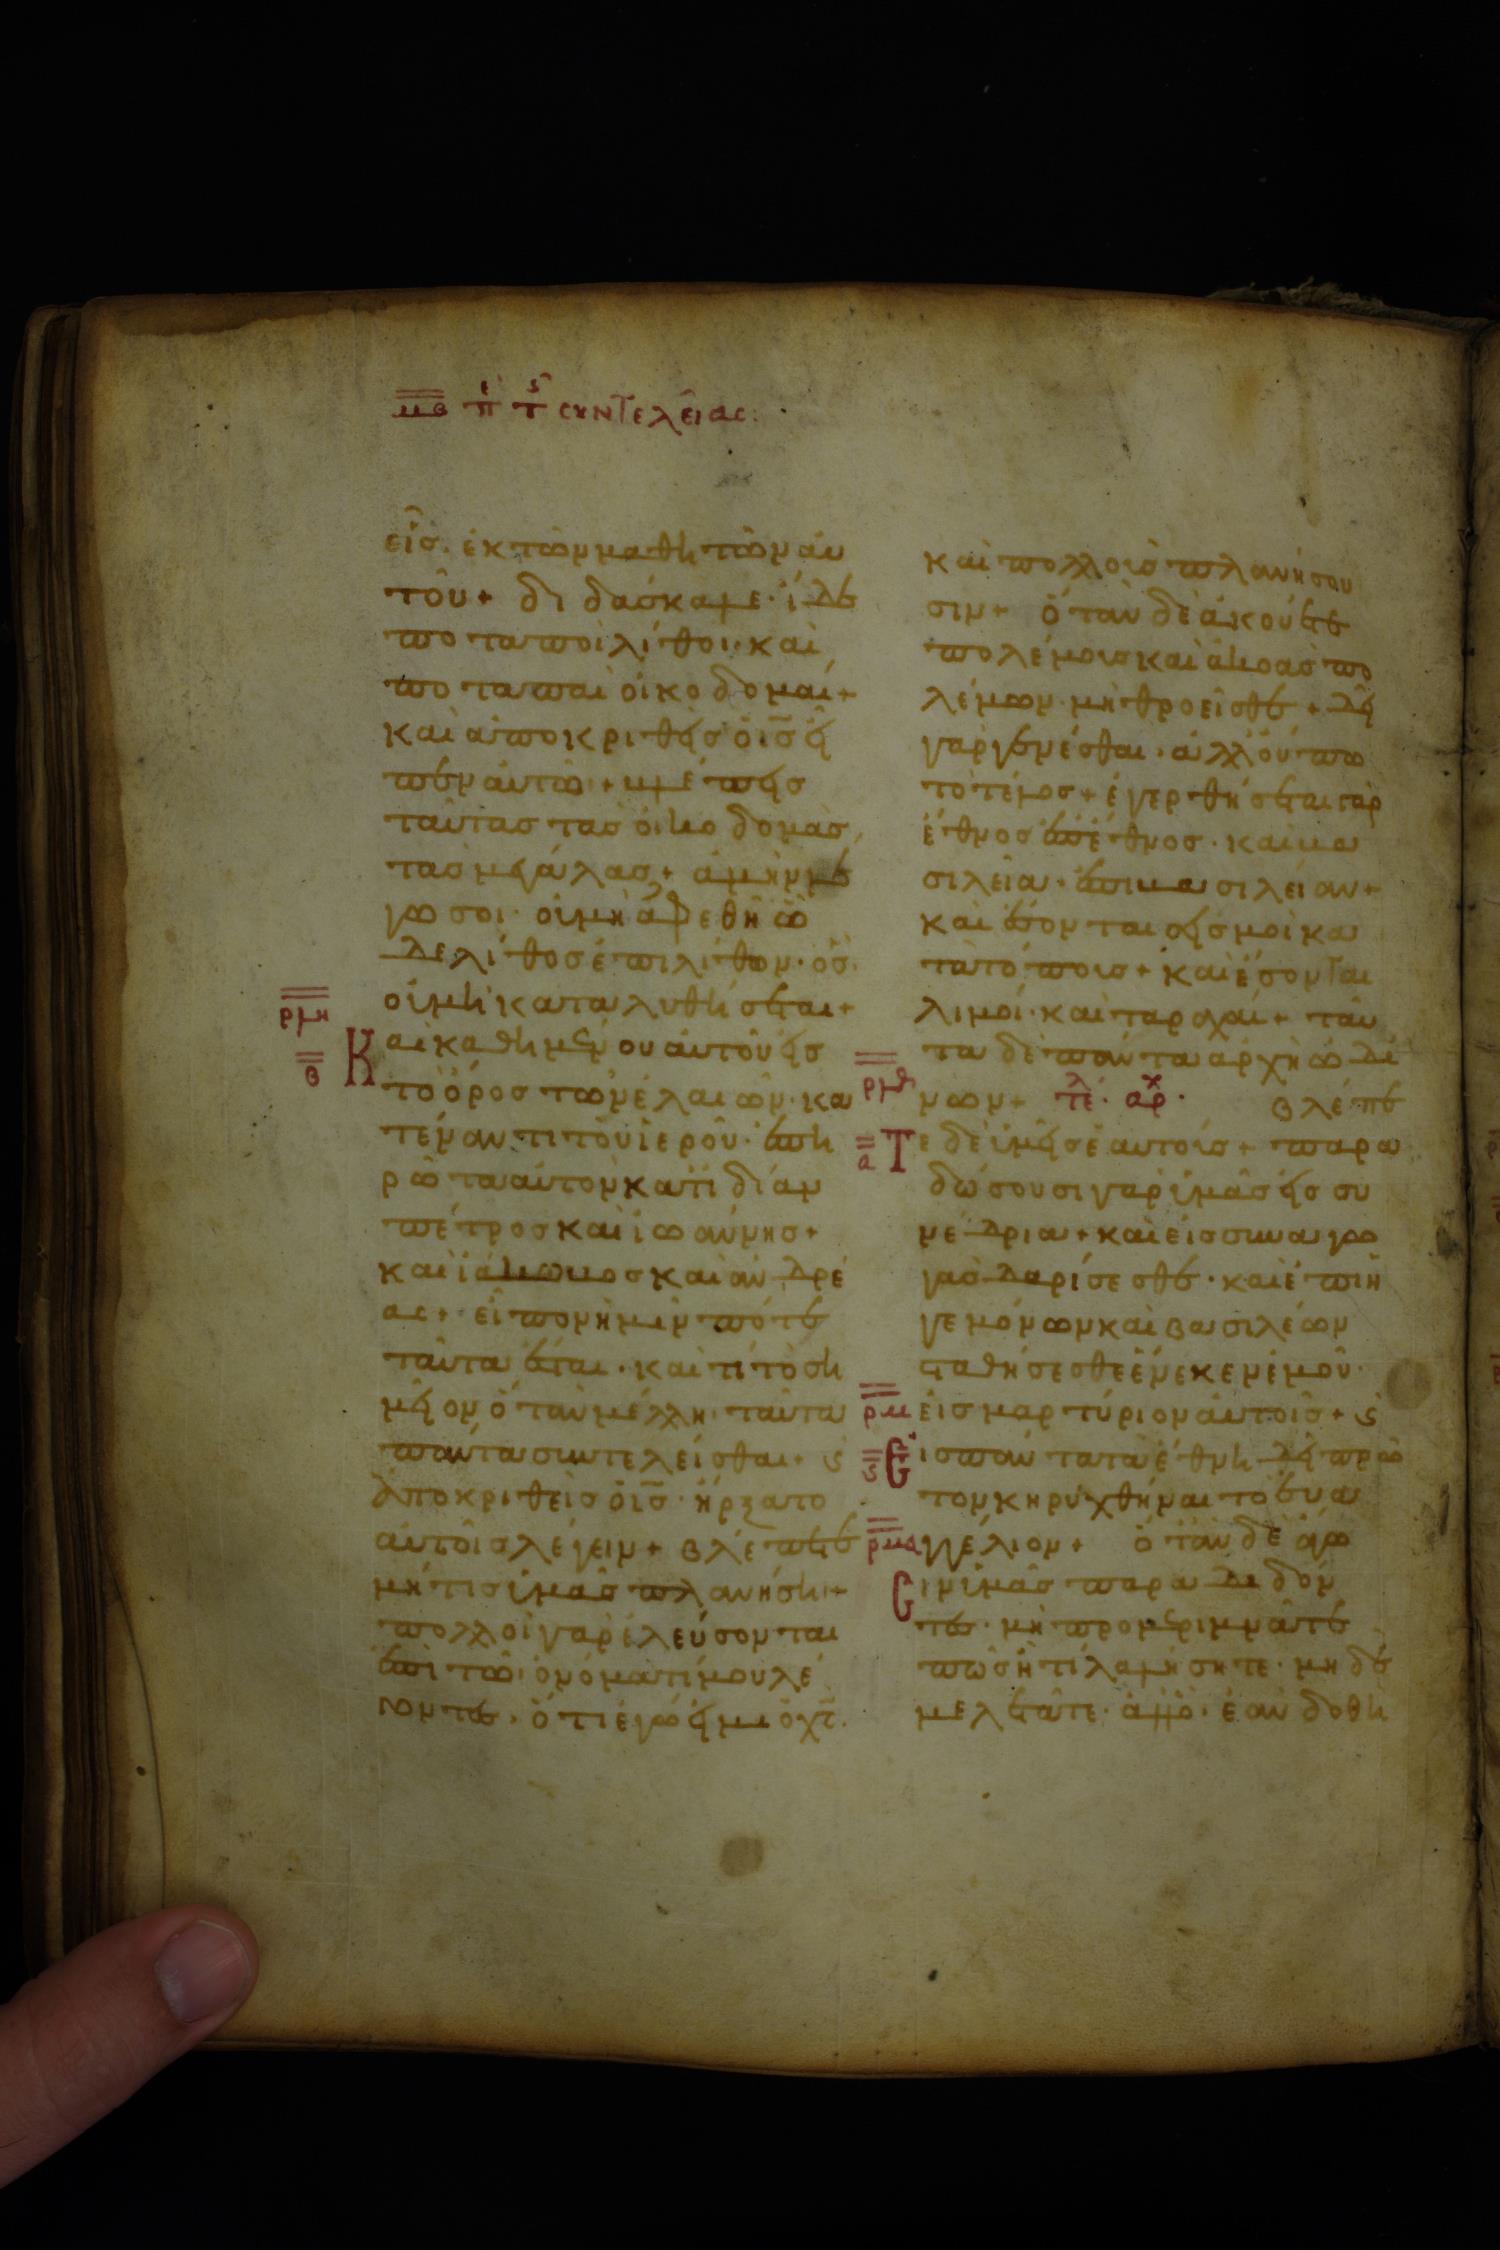 μβ π τ συντελείας:
εἷς. ἐκ τῶν μαθητῶν αὐ
τοῦ + διδάσκαλε· ἴδε
ποταποὶ λίθοι· καὶ
ποταπαὶ οἰκοδομαί +
καὶ ἀποκριθεὶς ὁ ις εἶ
πεν αὐτῶ + βλέπεις
ταύτας τὰς οἰκοδομὰς
τὰς μεγάλας + ἀμὴν λέ
γω σοι· οὐ μὴ ἀφεθῆ ὧ
δε λίθος ἐπὶ λίθον· ὃς
οὐ μὴ καταλυθήσεται +
ρμη
β
Καὶ καθημένου αὐτοῦ εἰς
τὸ ὄρος τῶν ἐλαιῶν· κα
τέναντι τοῦ ἱεροῦ· ἐπη
ρώτα αὐτὸν κατιδίαν
πέτρος καὶ ἰωάννης +
καὶ ἰάκωβος καὶ ἀνδρέ
ας + εἰπὸν ἡμῖν πότε
ταῦτα ἔσται· καὶ τί τὸ ση
μεῖον ὅταν μέλλη· ταῦτα
πάντα συντελεῖσθαι + ς
ἀποκριθεὶς ὁ ις· ἤρξατο
αὐτοῖς λέγειν + βλέπετε
μή τις ὑμᾶς πλανήση +
πολλοὶ γὰρ ἐλεύσονται
ἐπὶ τῶ ὀνόματί μου λέ
γοντες· ὅτι ἐγώ εἰμι ὁ χς.
καὶ πολλοὺς πλανήσου
σιν + ὅταν δὲ ἀκούετε
πολέμους καὶ ἀκοὰς πο
λέμων· μὴ θροεῖσθε + δεῖ
γὰρ γενέσθαι· ἀλλ οὔπω
τὸ τέλος + ἐγερθήσεται γὰρ
ἔθνος ἐπὶ ἔθνος· καὶ βα
σιλεία· ἐπὶ βασιλείαν +
καὶ ἔσονται σεισμοὶ κα
τὰ τόπους + καὶ ἔσονται
λιμοί· καὶ ταραχαί + ταῦ
τα δὲ πάντα ἀρχὴ ὠδί
ρμθ
νων + τέλ· αρχ· βλέπε
α
Τε δὲ ὑμεῖς ἑαυτούς + παρα
δώσουσι γὰρ ὑμᾶς εἰς συ
νέδρια + καὶ εἰς συναγω
γὰς δαρήσεσθε· καὶ ἐπὶ ἡ
γεμόνων καὶ βασιλέων
σταθήσεσθε ἕνεκεν ἐμοῦ·
ρν
εἰς μαρτύριον αὐτοῖς + ς
ς
Εἰς πάντα τὰ ἔθνη δεῖ πρῶ
τον κηρυχθῆναι τὸ εὐα
ρνα
γγέλιον + ὅταν δὲ ἄγω
Ειν ὑμᾶς παραδιδόν
τες· μὴ προμεριμνᾶτε
πῶς ἢ τί λαλήσητε· μηδὲ
μελετᾶτε· ἀλλ ὃ· ἐὰν δοθῆ